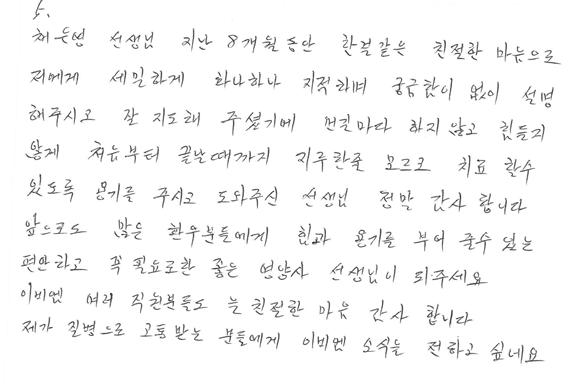 5.
채은영 선생님 지난 8개월동안 한결같은 친절한 마음으로
저에게 세밀하게 하나하나 지적하며 궁금함이 없이 설명
해주시고 잘 지도해 주셨기에 먼길마다 하지않고 힘들지
않게 처음부터 끝날때까지 지루한줄 모르고 치료 할수
있도록 용기를 주시고 도와주신 선생님 정말 감사 합니다
앞으로도 많은 환우분들에게 힘과 용기를 부어 줄수 있는
편안하고 꼭 필요로한 좋은 영양사 선생님이 되주세요
이비엔 여러 직원분들도 늘 친절한 마음 감사 합니다
제가 질병으로 고통받는 분들에게 이비엔 소식을 전하고 싶네요